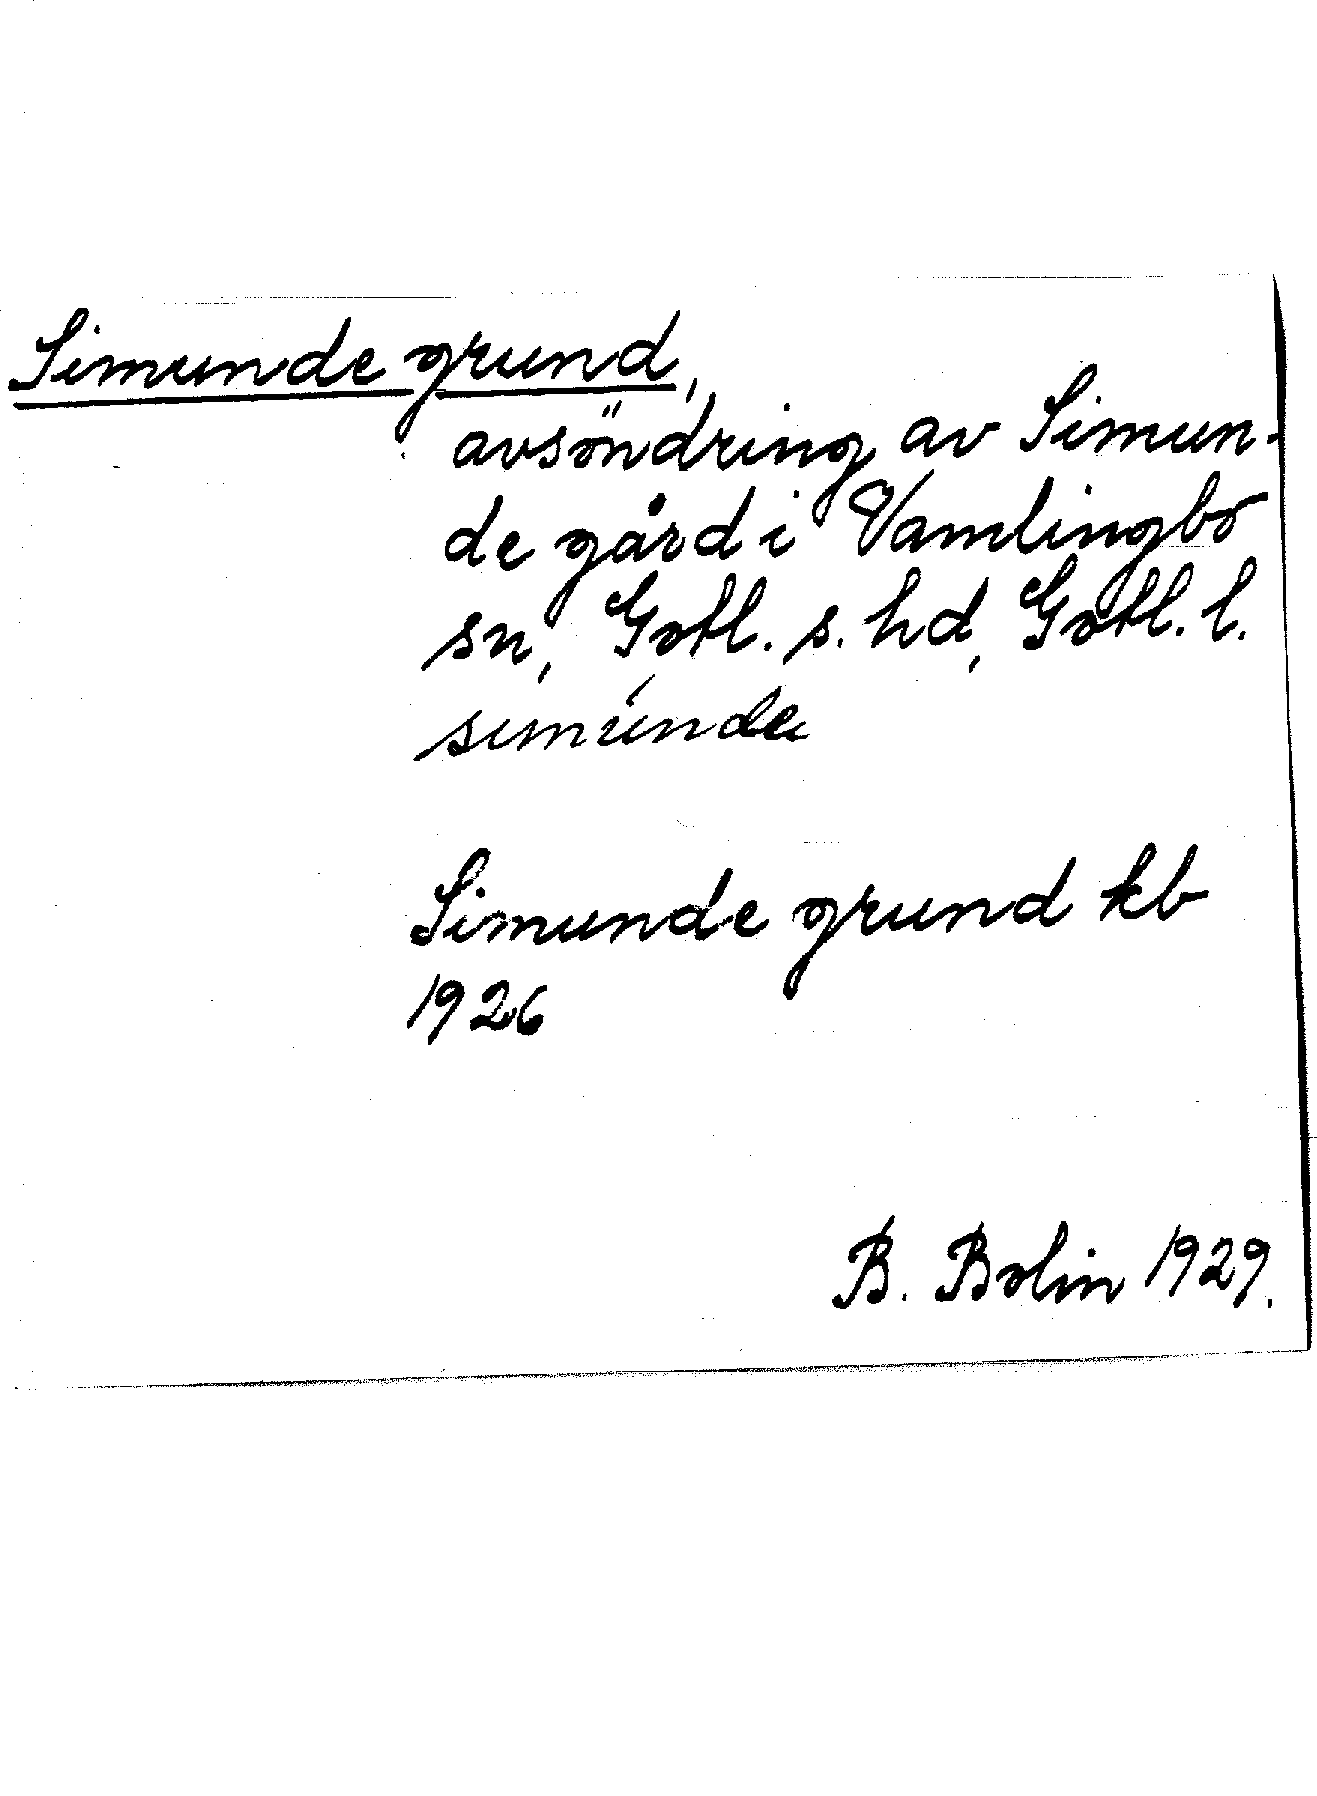 Simunde grund,
avsöndring av Simun-
de gård i Vamlingbo
sn, Gotl. s. hd, Gotl. l.
Simunde grund kb
1926
B. Bolin 1929.